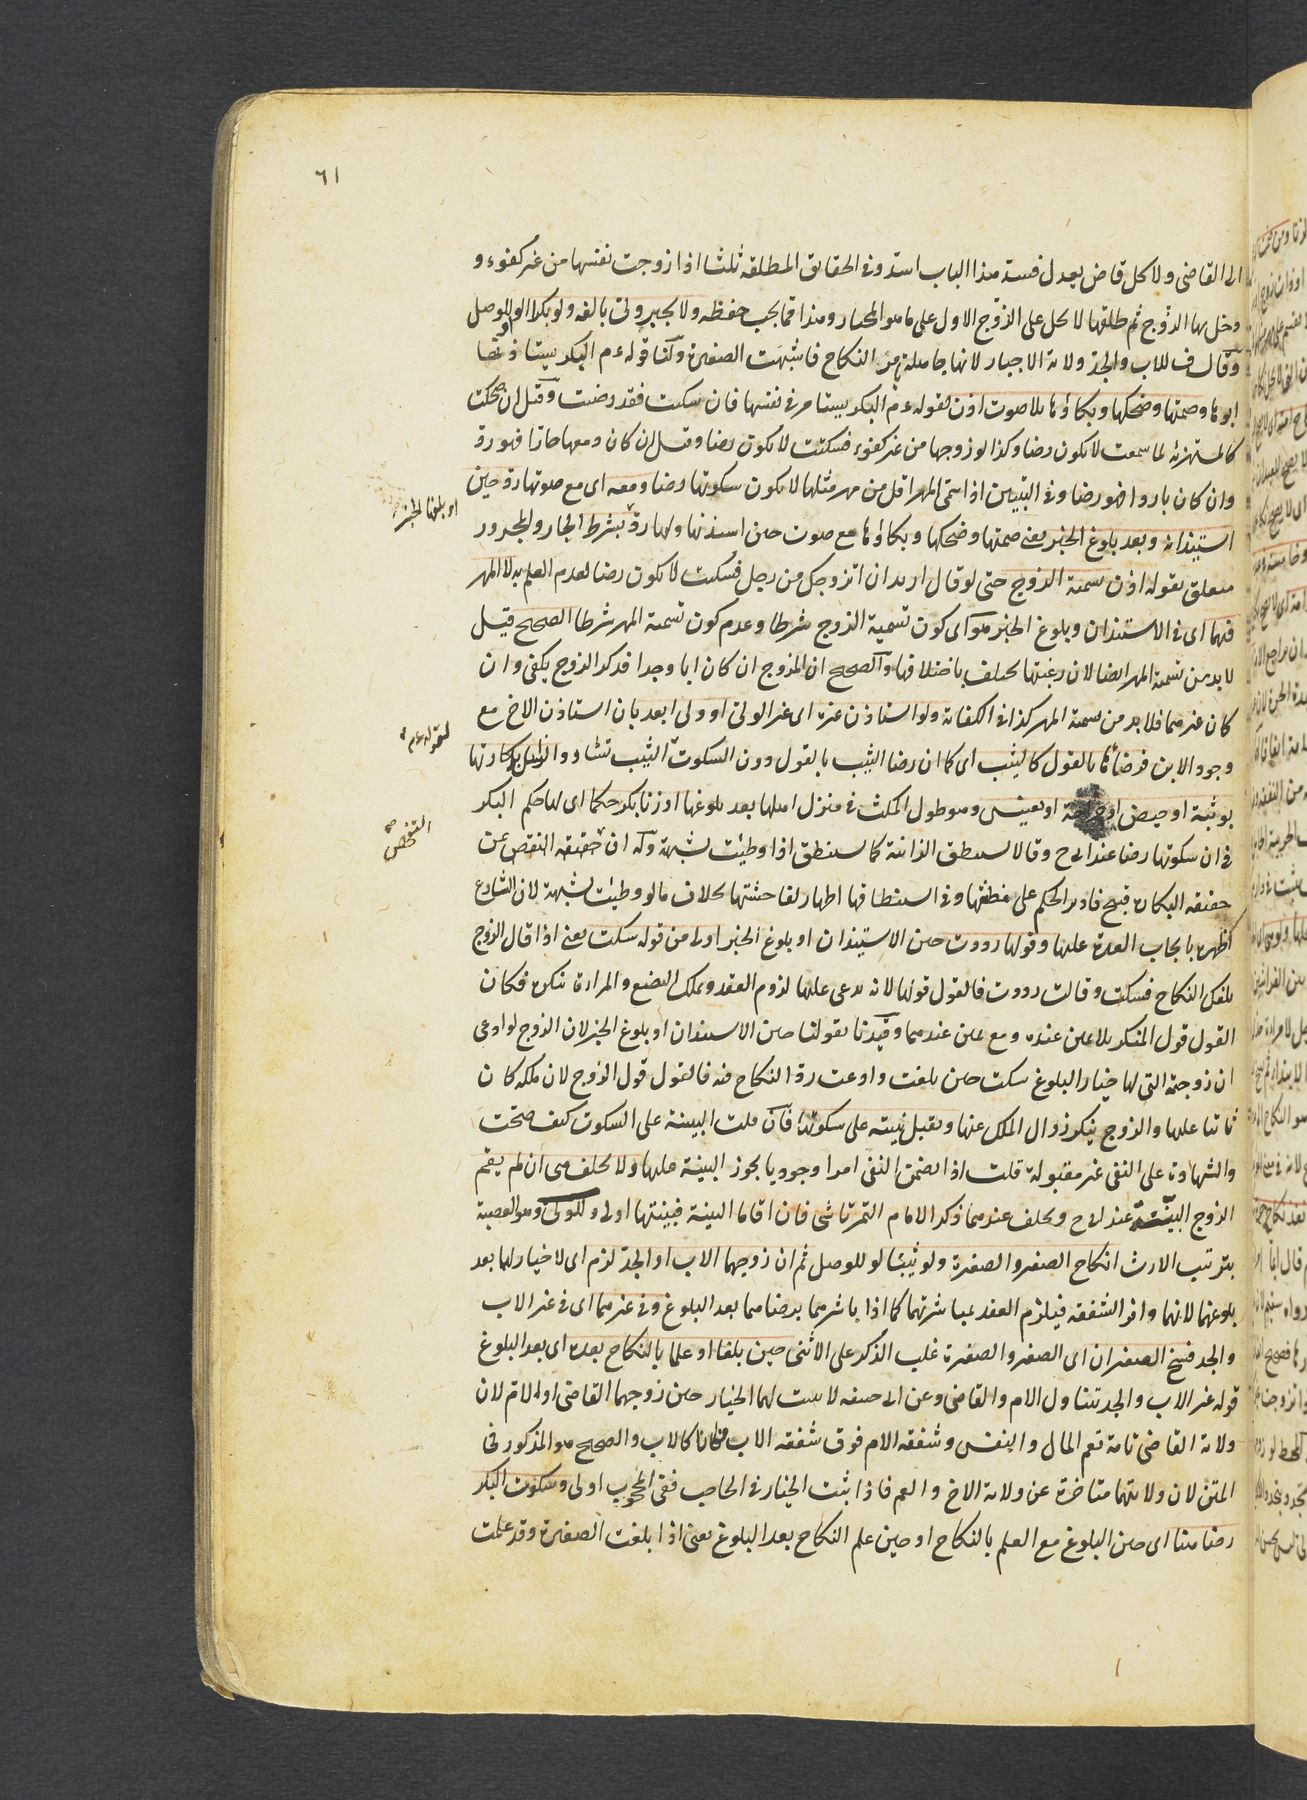 ٦١
الى القاضى ولا كل قاض يعدل فسد هذا الباب اسد وفى الحقايق المطلقة ثلثا اذا زوجت نفسها من غير كفوء و
دخل بها الزوج ثم طلقها لا تحل على الزوج الاول على ما هو المختار وهذا مما يجب حفظه ولا يجبر ولى بالغة ولو بكرا الو للوصل
وقال ف للاب والجد ولاية الاجبار لانها جاهلة بامر النكاح فاشبهت الصغيرة ولنا قوله عم البكر يستاذنها
ابوها وصمتها وضحكها وبكاؤها بلا صوت اذن لقوله عم البكر تستامر فى نفسها فان سكتت فقد رضيت وقيل ان ضحكت
كالمستهزئة لما سمعت لا يكون رضا وكذا لو زوجها من غير كفوء فسكتت لا يكون رضا وقيل ان كان دمعها حارا فهو رد
وان كان باردا فهو رضا وفى التبيين اذا سمى المهر اقل من مهر مثلها لا يكون سكوتها رضا ومعه اى مع صوتها رد حين
او بلغها الخبر
استيذانه وبعد بلوغ الخبر يعنى صمتها وضحكها وبكاؤها مع صوت حين استيذنها ولها رد بشرط الجار والمجرور
متعلق بقوله اذن تسمية الزوج حتى لو قال اريد ان اتزوجك من رجل فسكتت لا يكون رضا لعدم العلم به لا المهر
فيهما اى فى الاستئذان وبلوغ الخبر هو اى كون تسمية الزوج شرطا وعدم كون تسمية المهر شرطا الصحيح قيل
لا بد من تسمية المهر ايضا لان رغبتها تختلف باختلافها والصحيح ان المزوج ان كان ابا وجدا فذكر الزوج يكفى وان
كان غيرهما فلا بد من تسمية المهر كذا فى الكفاية ولو استاذن غيره اى غير الولى او ولى ابعد بان استاذن الاخ مع
لقوله عم
وجود الاب فرضاؤها بالقول كالثيب اى كما ان رضا الثيب بالقول دون السكوت الثيب تشاور والزائل بكارتها
بوثبة او حيض او جراحة او تعنيس وهو طول المكث فى منزل اهلها بعد بلوغها او زنا بكر حكما اى لها حكم البكر
التفحص
فى ان سكوتها رضا عند ابى ح وقالا تستنطق الزانية كما تستنطق اذا وطئت بشبهة وله ان حقيقة التفحص عن
حقيقة البكارة قبيح فادير الحكم على مظنتها وفى استنطاقها اظهار لفاحشتها بخلاف مالو وطئت بشبهة لان الشارع
اظهره بايجاب العدة عليها وقولها رددت حين الاستيذان او بلوغ الخبر اولى من قوله سكت يعنى اذا قال الزوج
بلغك النكاح فسكت وقالت رددت فالقول قولها لانه يدعى عليها لزوم العقد وملك البضع والمراة تنكره فكان
القول قول المنكر بلا يمين عنده ومع يمين عندهما وقيدنا بقولنا حين الاستيذان او بلوغ الخبر لان الزوج لو ادعى
ان زوجته التى لها خيار البلوغ سكت حين بلغت وادعت رد النكاح منه فالقول قول الزوج لان ملكه كان
ثابتا عليها والزوج ينكر زوال الملك عنها وتقبل بينته على سكوتها فان قلت البينة على السكوت كيف صحت
والشهادة على النفى غير مقبولة قلت اذا تضمن النفى امرا وجوديا يجوز البينة عليها ولا تحلف هى ان لم يقم
الزوج البينة عند ابى ح وتحلف عندهما ذكر الامام التمرتاشى فان اقاما البينة فبينتها اولى وللولى وهو العصبة
بترتيب الارث انكاح الصغير والصغيرة ولو ثيبا لو للوصل ثم ان زوجهما الاب او الجد لزم اى لا خيار لهما بعد
بلوغهما لانهما وافر الشفقة فيلزم العقد بمباشرتهما كما اذا باشرهما برضاهما بعد البلوغ وفى غيرهما اى فى غير الاب
والجد فسخ الصغيران اى الصغير والصغيرة غلب الذكر على الانثى حين بلغا او علما بالنكاح بعده اى بعد البلوغ
قوله غير الاب والجد تتناول الام والقاضى وعن ابى حنيفة لا يثبت لهما الخيار حين زوجهما القاضى او الام لان
ولاية القاضى تامة تعم المال والنفس وشفقة الام فوق شفقة الاب فكانا كالاب والصحيح هو المذكور فى
المتن لان ولايتهما متاخرة عن ولاية الاخ والعم فاذا ثبت الخيار فى الحاجب ففى المحجوب اولى وسكوت البكر
رضا هنا اى حين البلوغ مع العلم بالنكاح او حين علم النكاح بعد البلوغ يعنى اذا بلغت الصغيرة وقد علمت